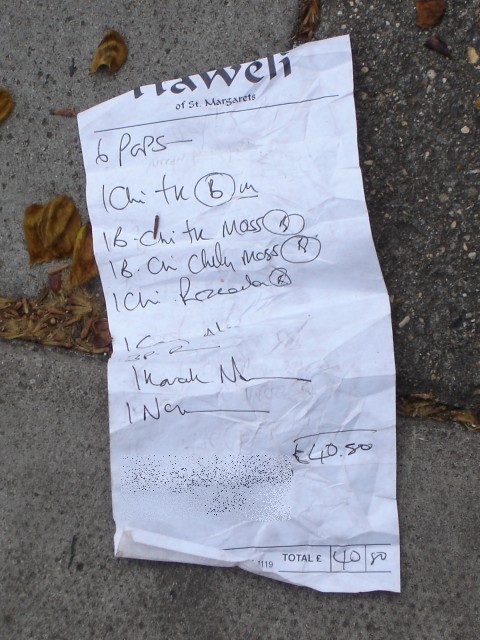 Haweli
of St. Margarets
6 Paps
1 Chi tk B
1 B. Chi tk Mass B
1 B. Chi Chily Mass B
1 Chi Rezeala B
1
1 Karak N
1 Nan
£40.80
1119 TOTAL £ 40 80